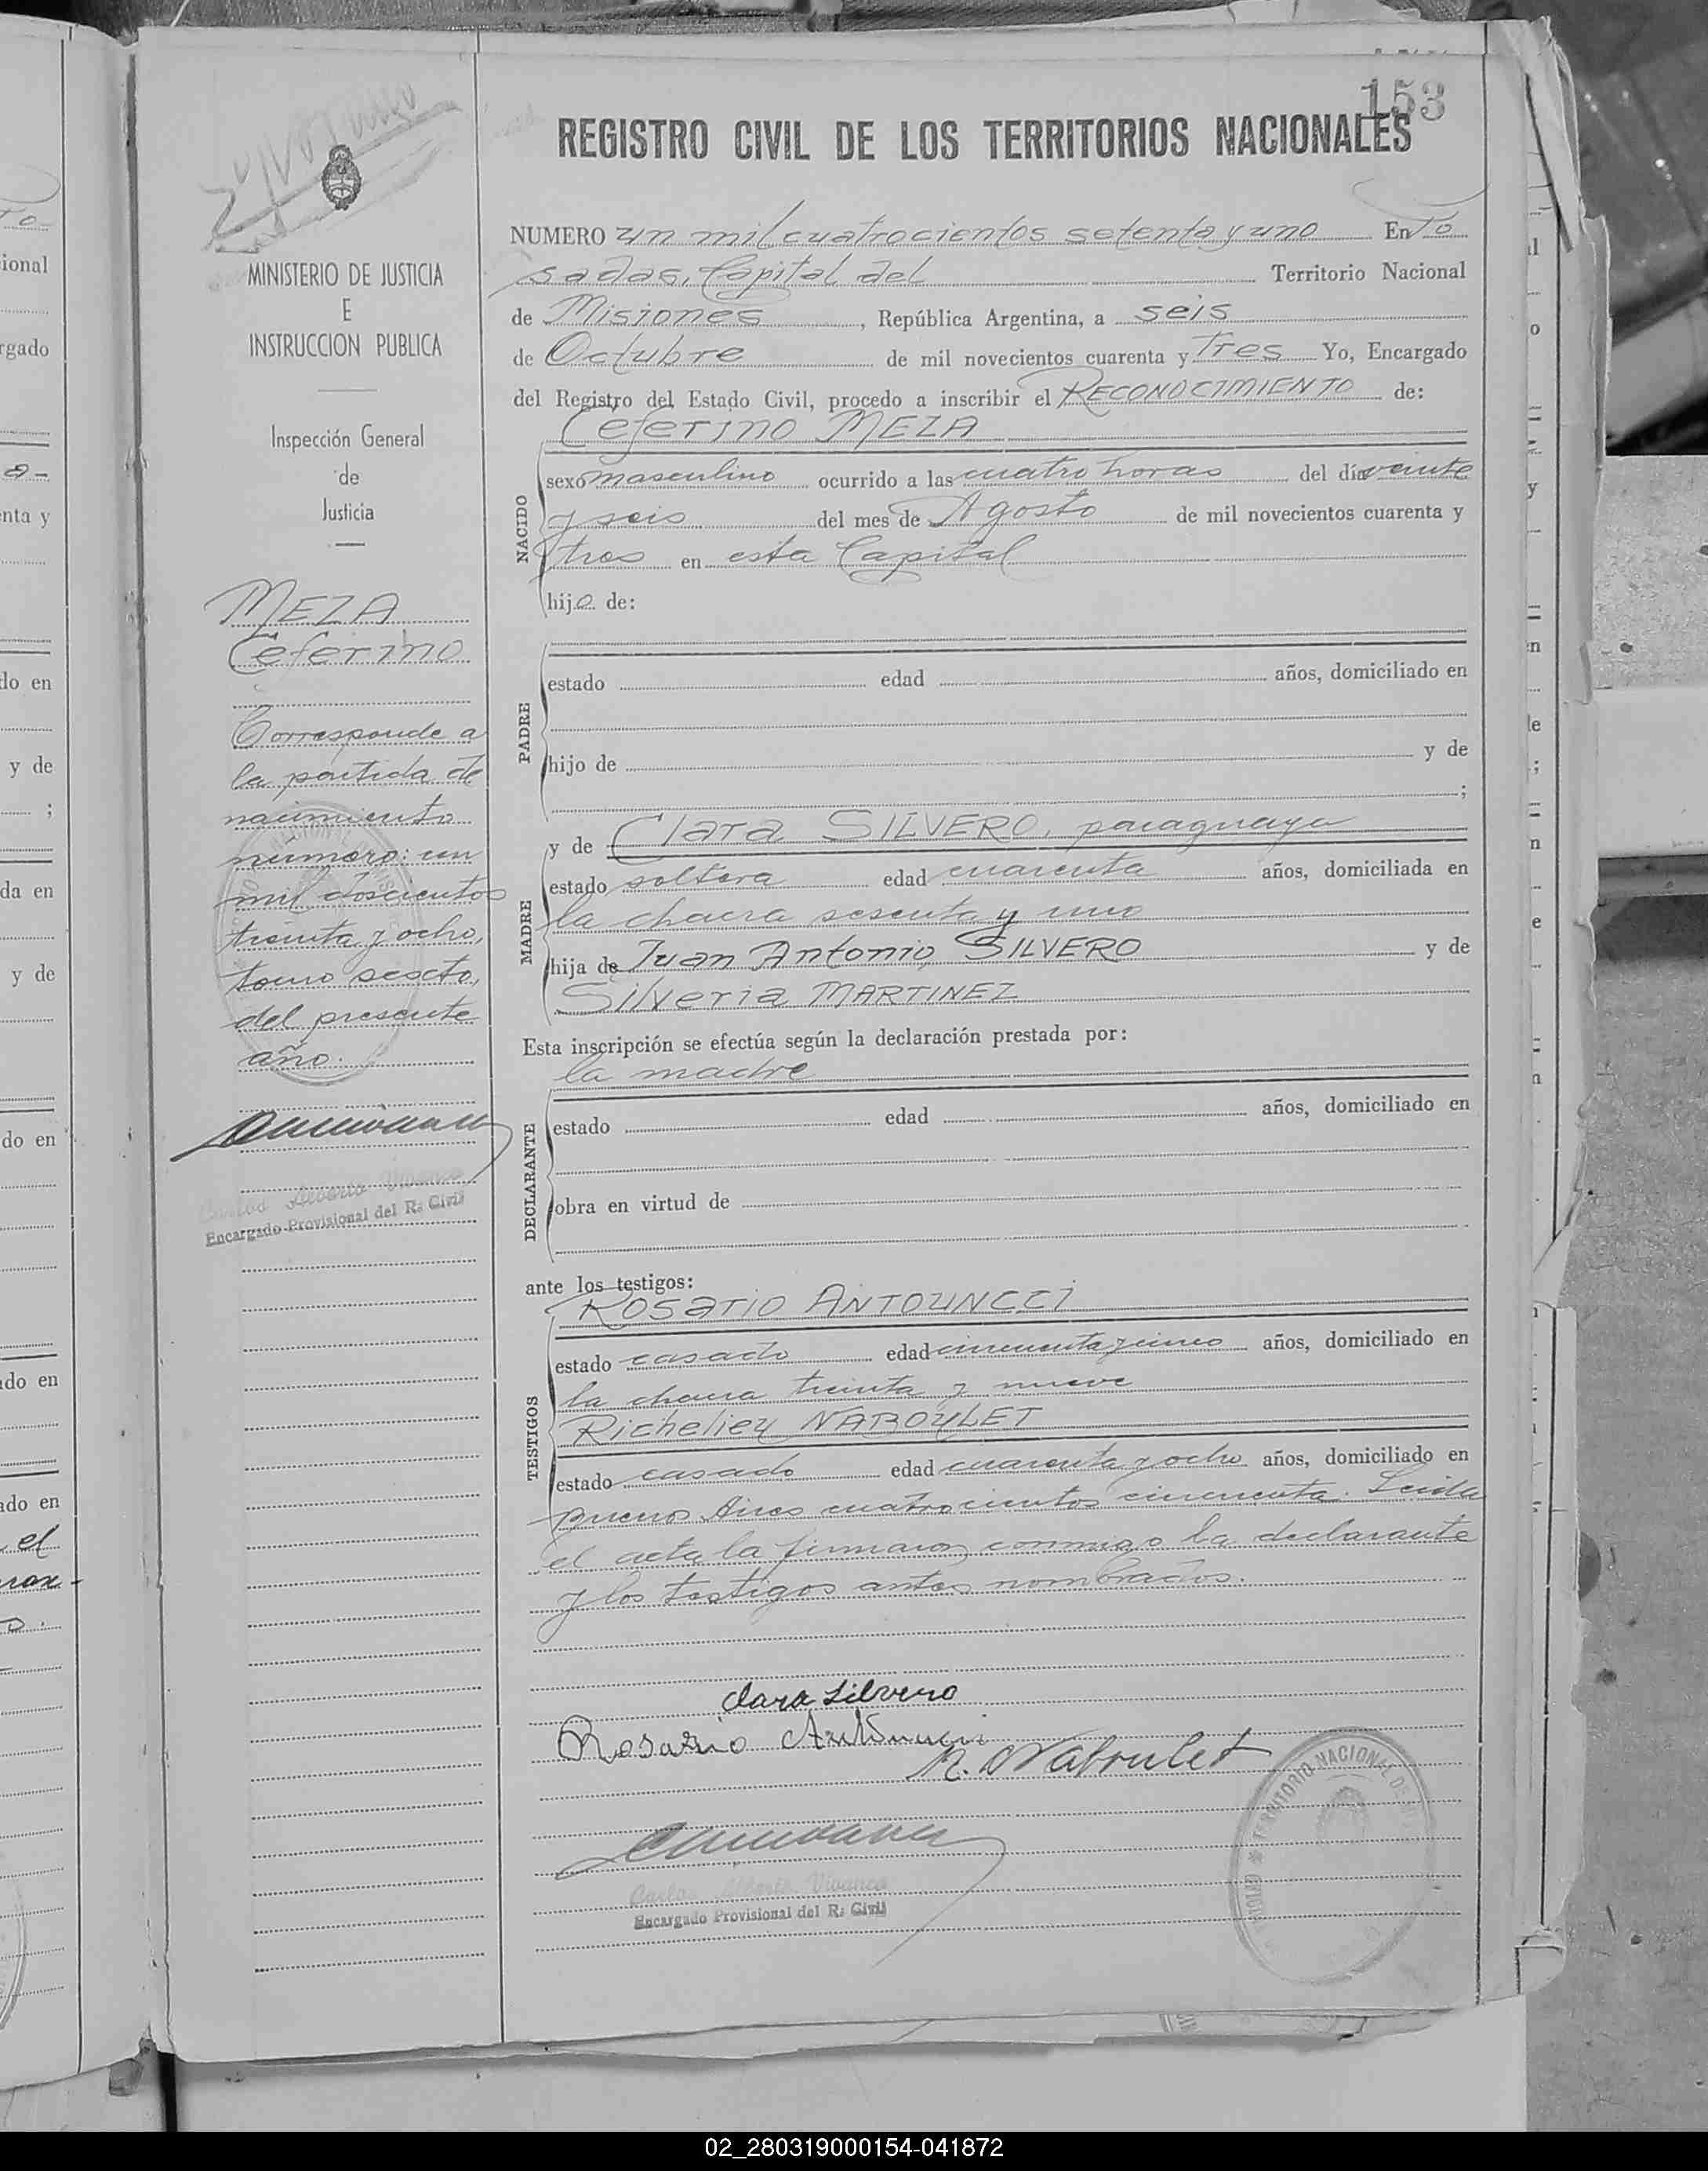 153
REGISTRO CIVIL DE LOS TERRITORIOS NACIONALES
MINISTERIO DE JUSTICIA
E
INSTRUCCION PUBLICA
Inspección General
de
Justicia
MEZA
Ceferino
Corresponde a
la partida de
nacimiento
número: un
mil doscientos
treinta y ocho,
tomo sexto,
del presente
año.
Carlos Alberto Vivanco
Encargado Provisional del R. Civil
NUMERO un mil cuatrocientos setenta y uno En Po
sadas, Capital del Territorio Nacional
de Misiones, República Argentina, a seis
de Octubre de mil novecientos cuarenta y Tres Yo, Encargado
del Registro del Estado Civil, procedo a inscribir el RECONOCIMIENTO de:
Ceferino MEZA
NACIDO
sexo masculino ocurrido a las cuatro horas del día veinte
y seis del mes de Agosto de mil novecientos cuarenta y
tres en esta Capital
hijo de:
PADRE
estado edad años, domiciliado en
hijo de y de
;
MADRE
y de Clara SILVERO, paraguaya
estado soltera edad cuarenta años, domiciliada en
la chacra sesenta y uno
hija de Juan Antonio SILVERO y de
Silveria MARTINEZ
Esta inscripción se efectúa según la declaración prestada por:
la madre
DECLARANTE
estado edad años, domiciliado en
obra en virtud de
ante los testigos:
TESTIGOS
Rosario ANTOUNCCI
estado casado edad cincuenta y cinco años, domiciliado en
la chacra treinta y nueve
Richelieu NABOULET
estado casado edad cuarenta y ocho años, domiciliado en
Buenos Aires cuatrocientos cincuenta. Leida
el acta la firmaron conmigo la declarante
y los testigos antes nombrados.
Clara Silvero
Rosario Antonucci
R. Naboulet
Carlos Alberto Vivanco
Encargado Provisional del R. Civil
TERRITORIO NACIONAL DE
02_280319000154-041872